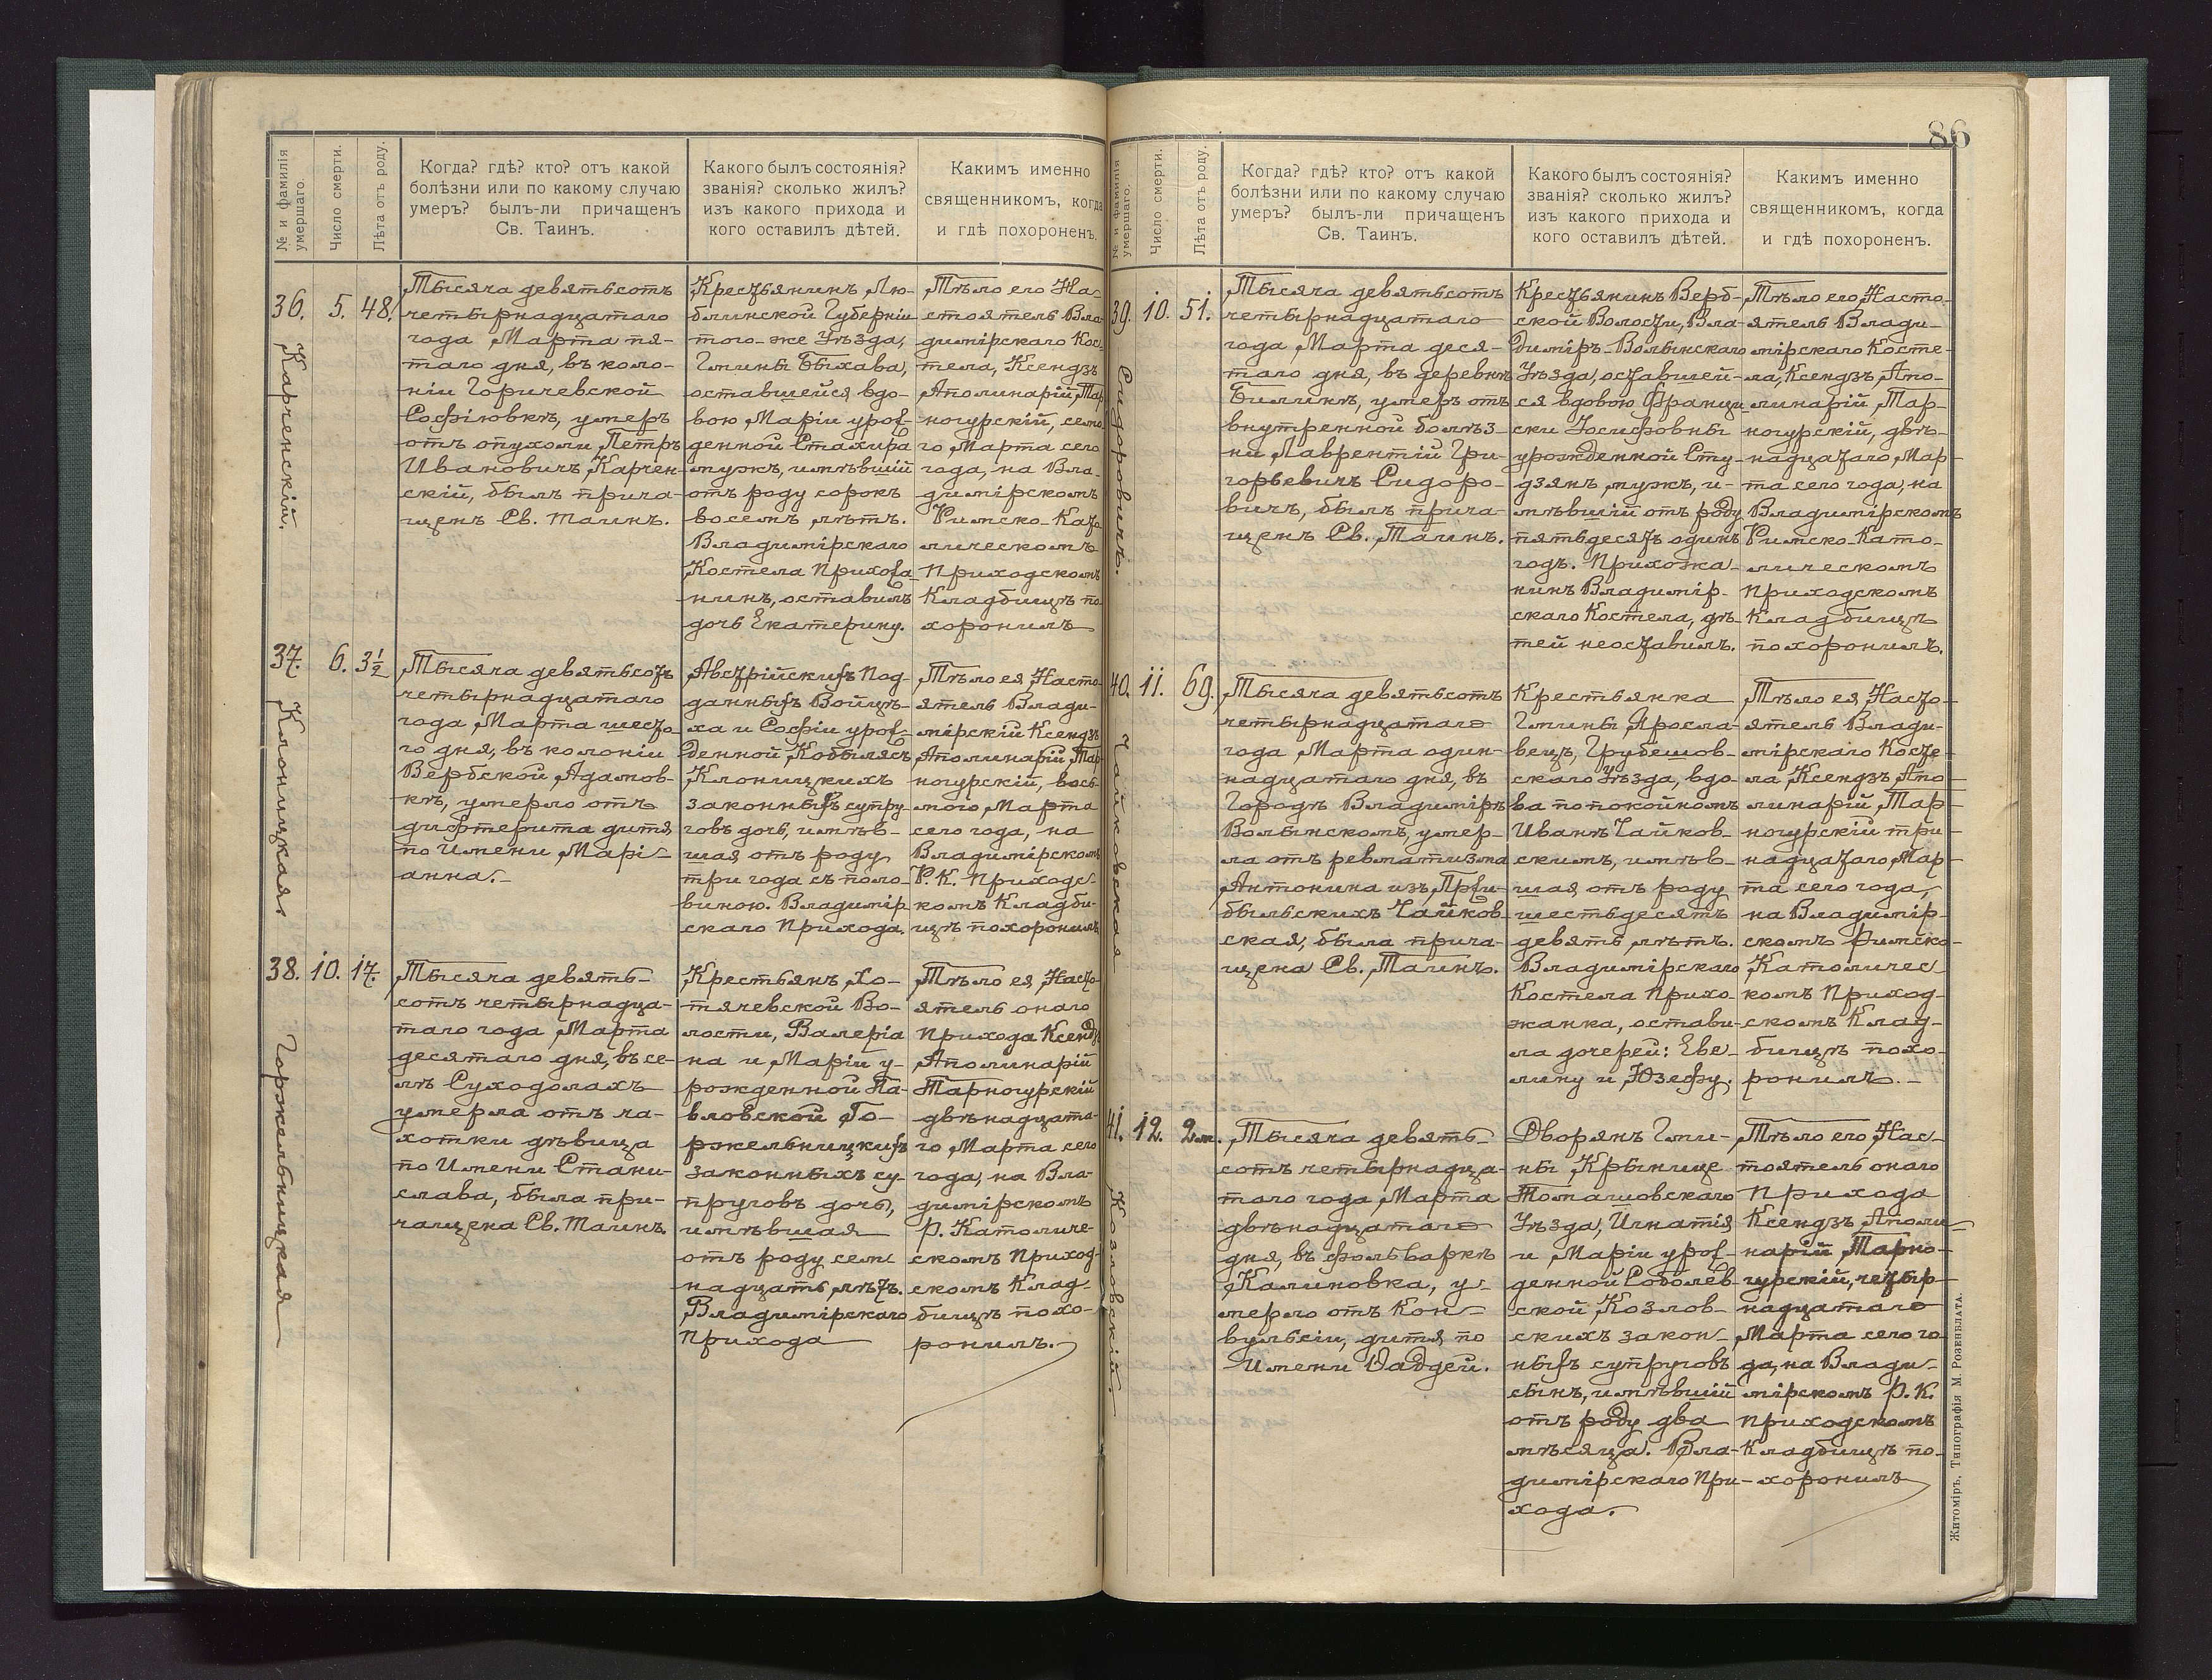 86
№ и фамилія
умершаго.
Число смерти.
Лѣта отъ роду.
Когда? гдѣ? кто? отъ какой
болѣзни или по какому случаю
умеръ? былъ-ли причащенъ
Св. Таинъ.
Какого былъ состоянія?
званія? сколько жилъ?
изъ какого прихода и
кого оставилъ дѣтей.
Какимъ именно
священникомъ, когда
и гдѣ похороненъ.
36.
Карченскій.
5.
48.
Тысяча девятьсотъ
четырнадцатаго
года Марта пя-
таго дня, въ коло-
ніи Горичевской
Софіювкѣ, умеръ
отъ опухоли Петръ
Ивановичъ Карчен-
скій, былъ прича-
щенъ Св. Таинъ.
Крестьянинъ Лю-
блинской Губерніи
того-же Уѣзда,
Гмины Быхава,
оставшейся вдо-
вою Маріи урож-
денной Стахира
мужъ, имѣвшій
отъ роду сорокъ
восемъ лѣтъ.
Владимірскаго
Костела Прихожа-
нинъ, оставилъ
дочь Екатерину.
Тѣло его На-
стоятель Вла-
димірскаго Кос-
тела, Ксендзъ
Аполинарій Тар
ногурскій, седмо
го Марта сего
года, на Вла-
димірскомъ
Римско-Като
лическомъ
Приходскомъ
Кладбищѣ по-
хоронилъ
37.
Клоницкая
6.
3½
Тысяча девятьсотъ
четырнадцатаго
года Марта шесто-
го дня, въ колоніи
Вербской Адамов-
кѣ, умерло отъ
дифтерита дитя
по имени Марі-
анна.-
Австрійскихъ Под-
данныхъ Войцѣ-
ха и Софіи урож-
денной Кобылясъ
Клоницкихъ
законныхъ супру
говъ дочь, имѣв-
шая отъ роду
три года съ поло-
виною. Владимір
скаго Прихода.
Тѣло ея Насто-
ятель Влади-
мірскій Ксендзъ
Аполинарій Тар
ногурскій, вось-
мого Марта
сего года, на
Владимірскомъ
Р. К. Приходс-
комъ Кладби-
щѣ похоронилъ
38.
Горжельницкая
10.
17.
Тысяча девять-
сотъ четырнадца-
таго года Марта
десятаго дня, въ се-
лѣ Суходолахъ
умерла отъ ча-
хотки дѣвица
по Имени Стани-
слава, была при-
чащена Св. Таинъ.
Крестьянъ Хо-
тячевской Во-
лости, Валеріа
на и Маріи у-
рожденной Па-
вловской Го-
ржельницкихъ
законныхъ су-
пруговъ дочь,
имѣвшая
отъ роду сем-
надцать лѣтъ.
Владимірскаго
Прихода
Тѣло ея Насто-
ятель онаго
Прихода Ксендзъ
Аполинарій
Тарногурскій
двѣнадцата-
го Марта сего
года, на Вла-
димірскомъ
Р. Католиче-
скомъ Приход-
скомъ Клад-
бищѣ похо-
ронилъ.
№ и фамилія
умершаго.
Число смерти.
Лѣта отъ роду.
Когда? гдѣ? кто? отъ какой
болѣзни или по какому случаю
умеръ? былъ-ли причащенъ
Св. Таинъ.
Какого былъ состоянія?
званія? сколько жилъ?
изъ какого прихода и
кого оставилъ дѣтей.
Какимъ именно
священникомъ, когда
и гдѣ похороненъ.
39.
Сидоровичъ.
10.
51.
Тысяча девятьсотъ
четырнадцатаго
года Марта деся-
таго дня, въ деревнѣ
Билинѣ, умеръ отъ
внутренной болѣз-
ни Лаврентій Гри-
горьевичъ Сидоро-
вичъ, былъ прича-
щенъ Св. Таинъ.
Крестьянинъ Верб-
ской Волости, Вла-
диміръ-Волынскаго
Уѣзда, оставшей-
ся вдовою Францы
ски Іосифовны
урожденной Сту-
дзянъ мужъ, и-
мѣвшій отъ роду
пятьдесятъ одинъ
годъ. Прихожа-
нинъ Владимір-
скаго Костела, дѣ-
тей неоставилъ.
Тѣло его Насто-
ятель Влади-
мірскаго Косте-
ла, Ксендзъ Апо-
линарій Тар-
ногурскій, двѣ-
надцатаго Мар-
та сего года, на
Владимірскомъ
Римско-Като-
лическомъ
Приходскомъ
Кладбищѣ
похоронилъ.
40.
Чайковская
11.
69.
Тысяча девятьсотъ
четырнадцатаго
года Марта один-
надцатаго дня, въ
Городѣ Владимірѣ
Волынскомъ, умер-
ла отъ ревматизма
Антонина изъ Пржи-
быльскихъ Чайков-
ская, была прича-
щена Св. Таинъ.
Крестьянка
Гмины Яросла-
вецъ, Грубешов-
скаго Уѣзда, вдо-
ва по покойномъ
Иванѣ Чайков-
скимъ, имѣв-
шая отъ роду
шестьдесятъ
девять лѣтъ.
Владимірскаго
Костела Прихо-
жанка, остави-
ла дочерей: Еве-
лину и Юзефу.
Тѣло ея Насто-
ятель Влади-
мірскаго Косте-
ла Ксендзъ Апо-
линарій Тар-
ногурскій три-
надцатаго Мар-
та сего года,
на Владимір-
скомъ Римско-
Католичес-
комъ Приход-
скомъ Клад-
бищѣ похо-
ронилъ.-
41.
Козловскій.
12.
2 м.
Тысяча девять-
сотъ четырнадца-
таго года Марта
двѣнадцатаго
дня, въ фольваркѣ
Калиновка, у-
мерло отъ Кон-
вульсіи, дитя по
Имени Фаддей.
Дворянъ Гми-
ны Крынице
Томашовскаго
Уѣзда, Игнатія
и Маріи урож-
денной Соболев-
ской Козлов-
скихъ закон-
ныхъ супруговъ
сынъ, имѣвшій
отъ роду два
мѣсяца. Вла-
димірскаго При-
хода.
Тѣло его Нас-
тоятель онаго
Прихода
Ксендзъ Аполи-
нарій Тарно-
гурскій, четыр-
надцатаго
Марта сего го-
да, на Влади-
мірскомъ Р. К.
Приходскомъ
Кладбищѣ по-
хоронилъ
Житоміръ, Типографія М. Розенблата.